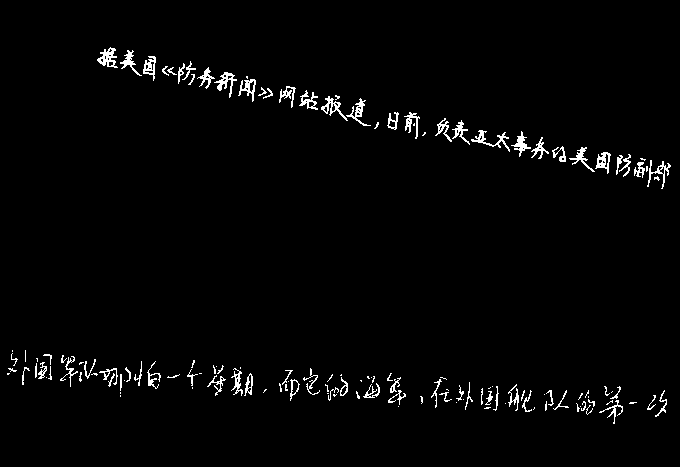 据美国《防务新闻》网站报道，日前，负责亚太事务的美国防副部
外国军队哪怕一个星期，而它的海军，在外国舰队的第一次